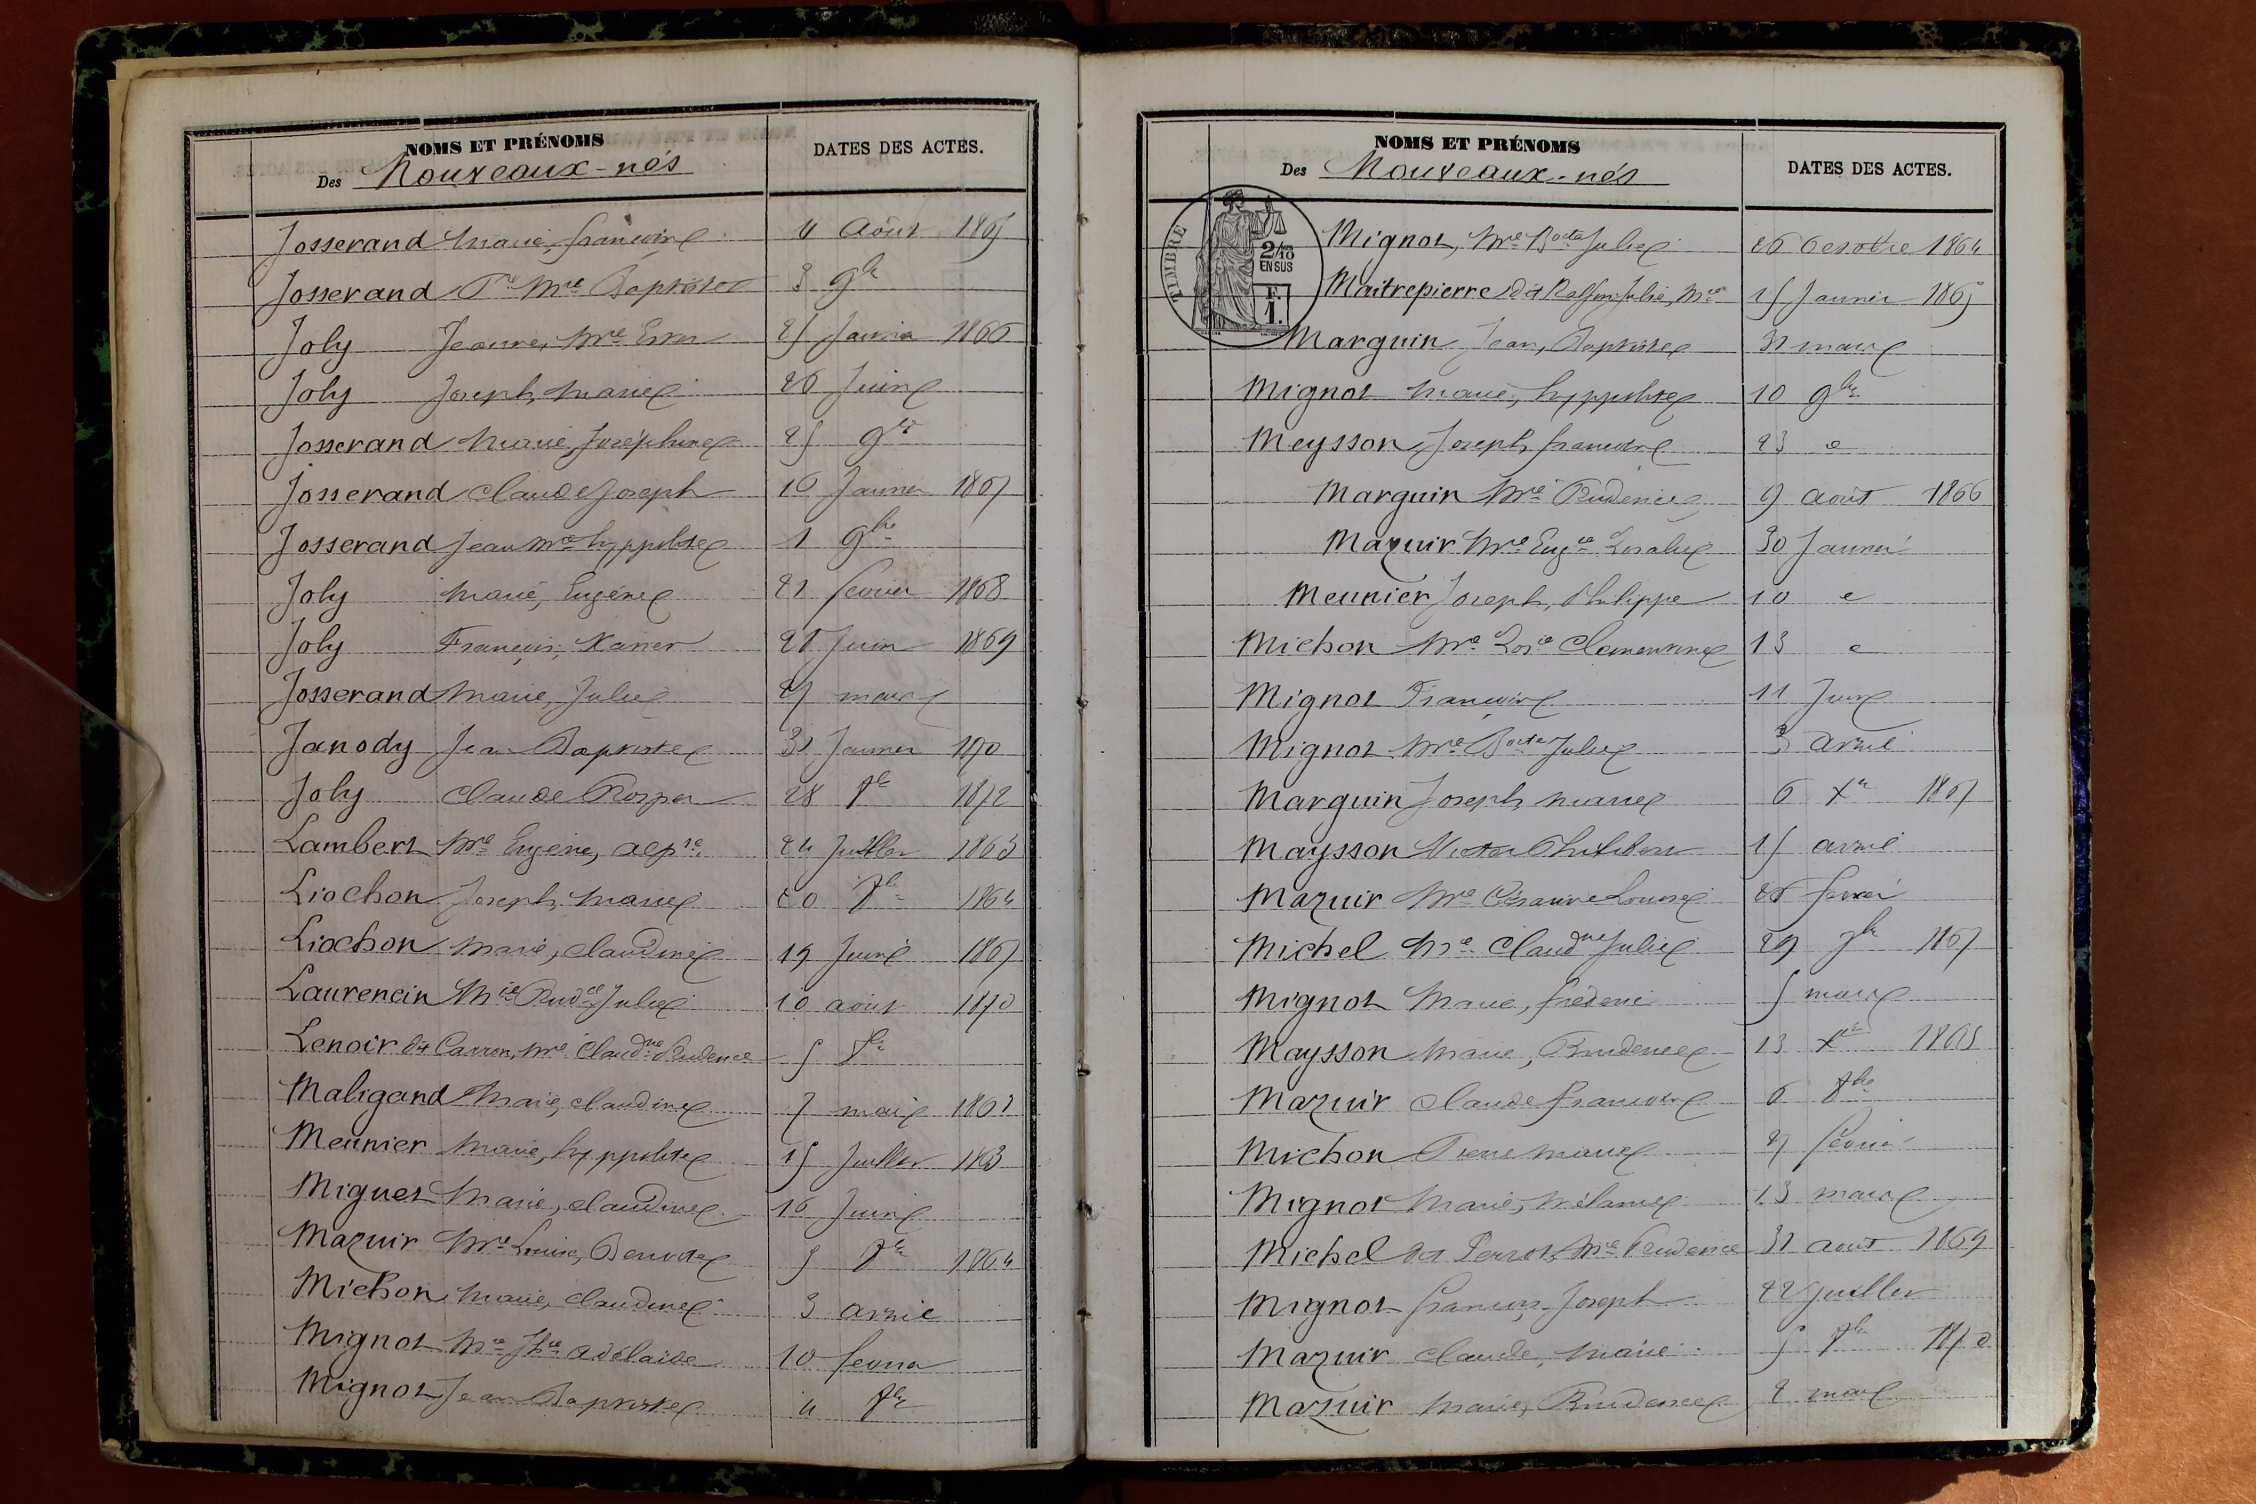 NOMS ET PRÉNOMS
Des Nouveaux-nés
DATES DES ACTES.
Josserand Marie, françoise 4 Août 1865
Josserand Pre Mie Baptiste 3 9bre
Joly Jeanne, Mie 25 Janvier 1866
Joly Joseph, Marie 26 Juin
Josserand Marie, Joséphine 25 9bre
Josserand Claude Joseph 16 Janvier 1867
Josserand Jean Mie hyppolite 1 9bre
Joly Marie, Eugénie 21 fevrier 1868
Joly François, Xavier Juin 1869
Josserand Marie, Julie mars
Janody Jean Baptiste 31 Janvier 1870
Joly Claude Prosper 28 1872
Lambert Mie Eugénie, 24 Juillet 1863
Liochon Joseph, Marie 20 1864
Liochon Marie, Claudine 19 Juin 1867
Laurencin Mie Prudce Julie 10 août 1870
Lenoir dit Carron, Mie Claudne Prudence 5
Maligand Marie, Claudine 7 1861
Meunier Marie, hyppolite 15 Juillet 1863
Miguet Marie, Claudine 16 Juin
Mazuir Mie Louise, Benoite 5 1864
Michon Marie, Claudine 3 avril
Mignot Mie Adélaïde 10 fevrier
Mignot Jean Baptiste 4
TIMBRE
2/10
EN SUS
F.
1.
NOMS ET PRÉNOMS
Des Nouveaux-nés
DATES DES ACTES.
Mignot, Mie Bnoite Julie 26 Octobre 1864
Maitrepierre dit Julie, Mie 15 Janvier 1865
Marguin Jean, Baptiste 31 mars
Mignot Marie, hyppolite 10 9bre
Meysson Joseph françois 23 e
Marguin Mie Prudence 9 août 1866
Mazuir Mie Eugie Rosalie 30 Janvier
Meunier Joseph, Philippe 10 e
Michon Mie Clementine 13 e
Mignot François 11 Juin
Mignot Mie Bnoite Julie 3 avril
Marguin Joseph, Marie 6 Xre 1867
Maysson Victor 15 avril
Mazuir Mie Césarine Louise 26 fevrier
Michel Mie Claudne Julie 29 1867
Mignot Marie, fréderic 5 mars
Maysson Marie, Prudence 13 Xre 1868
Mazuir Claude françois 6 8bre
Michon Pierre Marie fevrier
Mignot Marie, Mélanie 13 mars
Michel dit Perrot, Mie Prudence 31 août 1869
Mignot françois, Joseph 22 Juillet
Mazuir Claude, Marie 5 1870
Mazuir Marie, Prudence 2